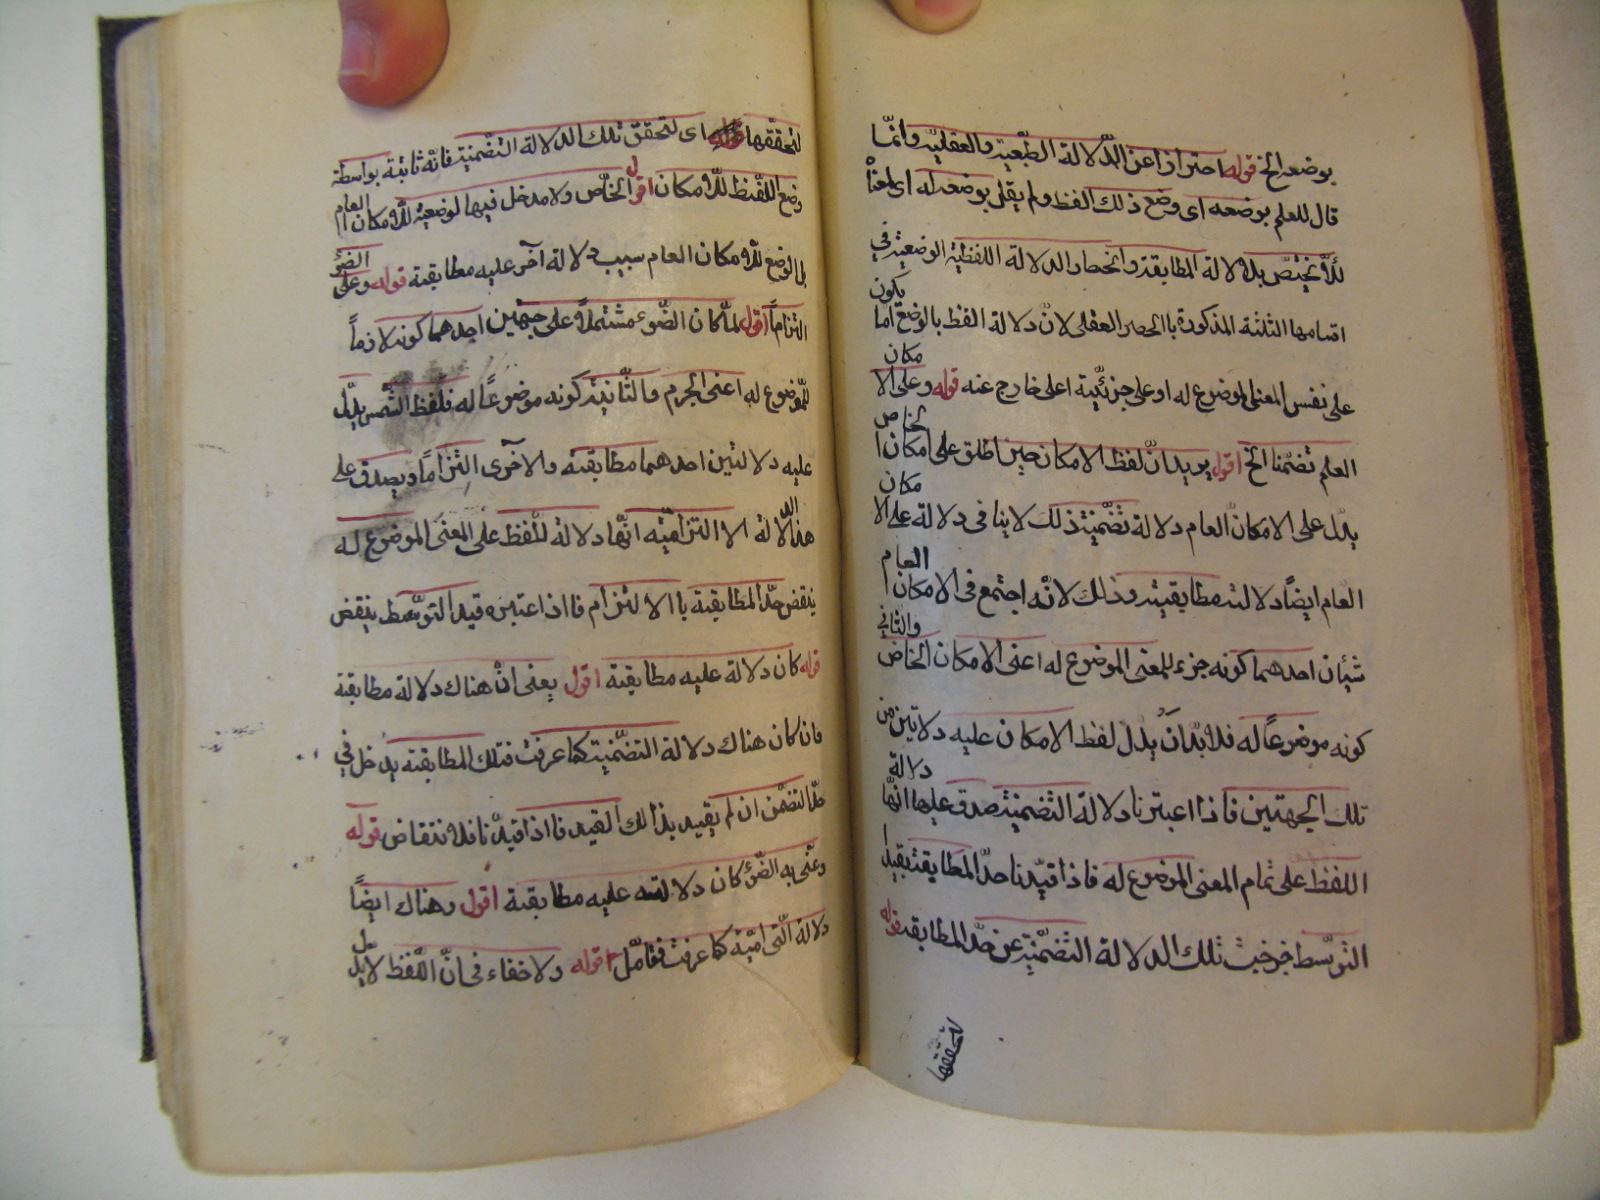 بوضعه الخ قوله احترازا عن الدلالة الطبعية والعقلية وانما
قال للعلم بوضعه اى وضع ذلك الفظ ولم يقل بوضعه له اى لمعنا
لئلا يختص بدلالة المطابقة وانحصار الدلالة اللفظية الوضعية في
اقسامها الثلثة المذكورة باالحصر العقلى لان دلالة الفظ بالوضع اما يكون
على نفس المعنى الموضوع له او على جزئية اعلى خارج عنه قوله وعلى الا مكان
العلم تضمنا الخ اقول يريد ان لفظ الامكان حين اطلق على امكان الخاص
يدل على الامكان العام دلالة تضمنية ذلك لا ينافى دلالة على الا مكان
العام ايضاً دلالته مطابقية وذلك لانه اجتمع فى الامكان العام
شيئان احدهما كونه جزء للمعنى الموضوع له اعنى الامكان الخاص والثانى
كونه موضوعاً له فلابد ان يدل لفظ الامكان عليه دلاتين من
تلك الجهتين فاذا اعتبرنا دلالة التضمنية صدق عليها انها دلالة
اللفظ على تمام المعنى الموضوع له فاذا قيدنا حد المطابقة بقيد
التوسط خرجت تلك الدلالة التضمنية عن حد المطابقة قوله
لتحققها
لتحققها اى لتحقق تلك الدلالة التضمنية فانه ثابتة بواسطة
وضع اللفظ للامكان الخاص ولا مدخل فيها لوضعية للامكان العام
بل الوضع للامكان العام سبب دلالة آخر عليه مطابقة قوله وعلى الضؤ
التزاماً اقول لما كان الضوء مشتملا على جهتين احدهما كونه لازماً
للموضوع له اعنى الجرم والثانية كونه موضوعاً له فلفظ الشمس يدل
عليه دلالتين احدهما مطابقة والاخرى التزاماً ويصدق على
هذا الدلالة الا التزامية انها دلالة للفظ على المعنى الموضوع له
ينقض حد المطابقة باالالتزام فااذا اعتبره قيد التوسط ينقض
قوله كان دلالة عليه مطابقية اقول يعنى ان هناك دلالة مطابقة
فان كان هناك دلالة التضمنية كما عرفت فتلك المطابقة يدخل في
حد التضمن ان لم يقييد بذالك القيد فااذا قيدنا فلا نتقاض قوله
وعنى به الضؤ كان دلالته عليه مطابقية اقول وهناك ايضاً
دلالة كما عرفت فتأمل قوله ولاخفاء فى ان اللفظ لا يدل